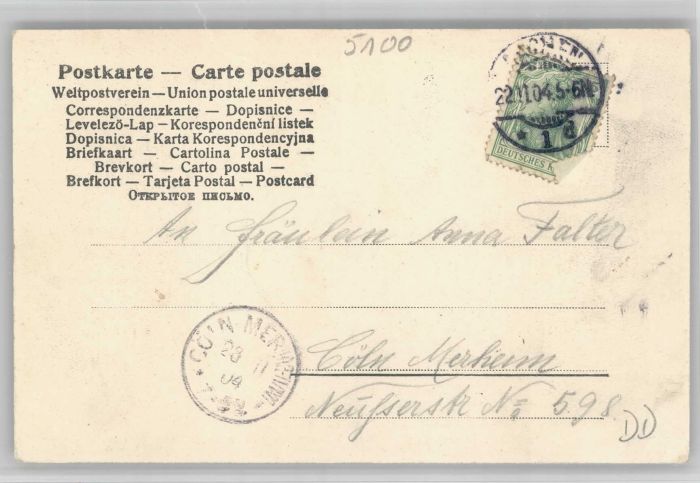 5100
Postkarte — Carte postale
Weltpostverein — Union postale universelle
Correspondenzkarte — Dopisnice —
Levelező-Lap — Korespondenční listek
Dopisnica — Karta Korespondencyjna
Briefkaart — Cartolina Postale —
Brevkort — Carto postal —
Brefkort — Tarjeta Postal — Postcard
Открытое письмо.
AACHEN
22.11.04.5-6N
* 1 d
DEUTSCHES R
An Fräulein Anna Falter
CÖLN-MERHEIM
23 11
04
Cöln Merheim
Neusserstr No 598
DD